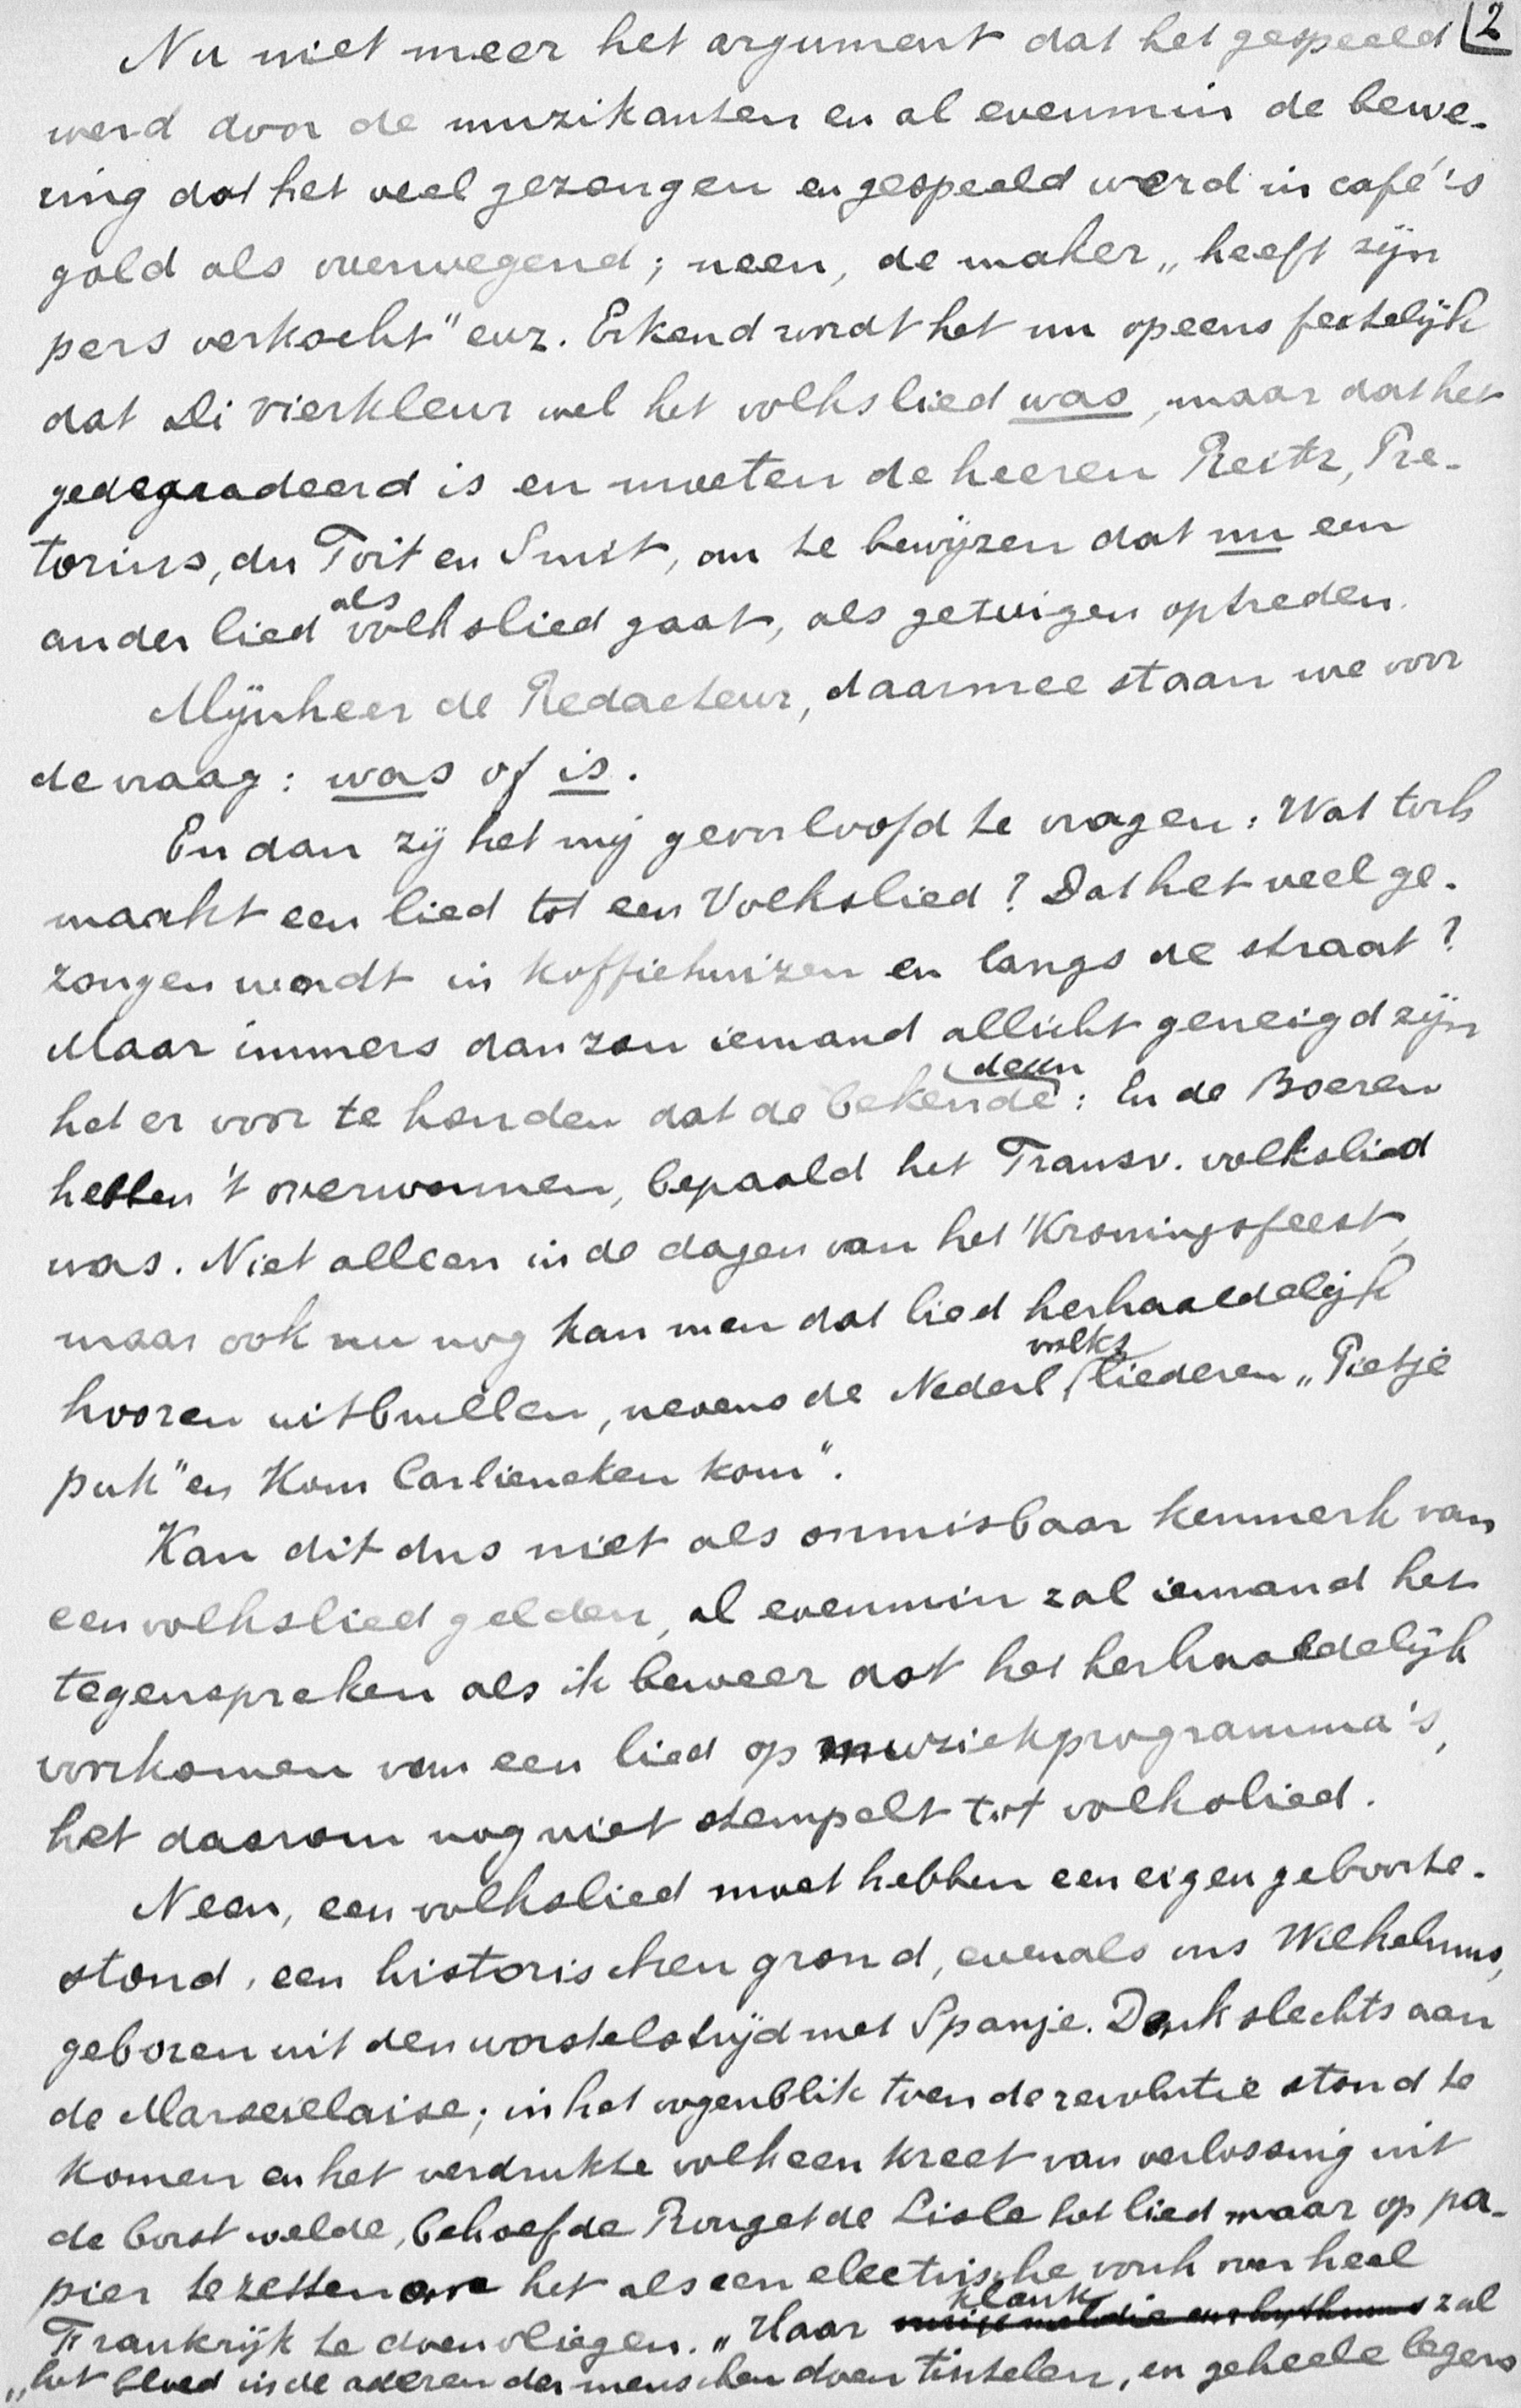 2
Nu niet meer het argument dat het gespeeld
werd door de muzikanten en al evenmin de bewe-
ring dat het veel gezongen en gespeeld werd in café's
gold als overwegend; neen, de maker „heeft zijn
pers verkocht" enz. Erkend wordt het nu opeens feestelijk
dat Di vierkleur wel het volkslied was, maar dat het
gedegradeerd is en moeten de heeren Reitz, Pre-
torius, du Toit en Smit, om te bewijzen dat nu een
ander lied als volkslied gaat, als getuigen optreden.
Mijnheer de Redacteur, daarmee staan we voor
de vraag: was of is.
En dan zij het mij geoorloofd te vragen: Wat toch
maakt een lied tot een Volkslied? Dat het veel ge-
zongen wordt in koffiehuizen en langs de straat?
Maar immers dan zou iemand allicht geneigd zijn
het er voor te houden dat de bekende deun: En de Boeren
hebben 't overwonnen, bepaald het Transv. volkslied
was. Niet alleen in de dagen van het Kroningsfeest,
maar ook nu nog kan men dat lied herhaaldelijk
hooren uitbrullen, nevens de Nederl volksliederen „Pietje
puk" en Kom Carlieneken kom".
Kan dit dus niet als onmisbaar kenmerk van
een volkslied gelden, al evenmin zal iemand het
tegenspreken als ik beweer dat het herhaaldelijk
voorkomen van een lied op muziekprogramma's,
het daarom nog niet stempelt tot volkslied.
Neen, een volkslied moet hebben een eigen geboorte-
stond, een historischen grond, evenals ons Wilhelmus,
geboren uit den worstelstrijd met Spanje. Denk slechts aan
de Marseielaise; in het oogenblik toen de revolutie stond te
komen en het verdrukte volk een kreet van verlossing uit
de borst welde, behoefde Rouget de Lisle het lied maar op pa-
pier te zetten om het als een electrische vonk over heel
Frankrijk te doen vliegen. „Haar klank zal
„het bloed in de aderen der menschen doen tintelen, en geheele legers